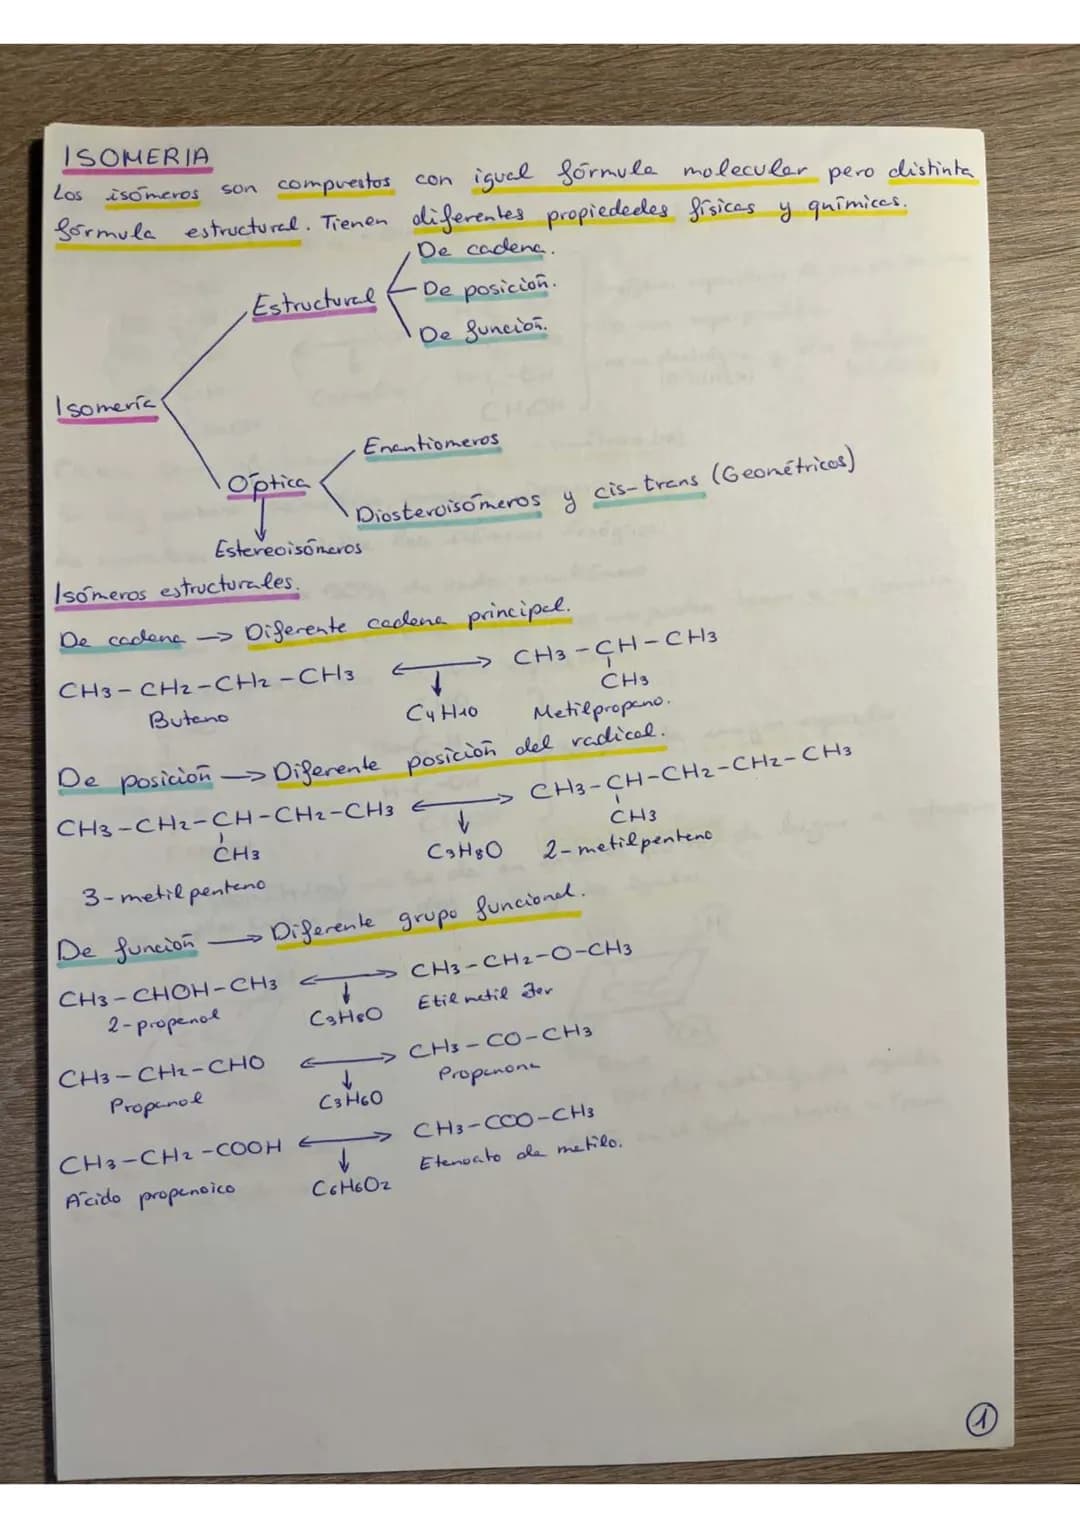 ISOMERIA
Los isómeros son compuestos con igual fórmula molecular pero distinta
fórmula estructural. Tienen diferentes propiedades físicas y químicas.
De cadena.
Estructural
De posición.
De función.
Isomería
Enantiomeros
Óptica
Diosteroisómeros y cis-trans (Geométricos)
Estereoisómeros
Isómeros estructurales.
De cadena → Diferente cadena principal.
CH3-CH2-CH2-CH3 ⟷ CH3-CH-CH3
↓ CH3
Butano C4H10 Metilpropano.
De posición → Diferente posición del radical.
CH3-CH2-CH-CH2-CH3 ⟷ CH3-CH-CH2-CH2-CH3
CH3 ↓ CH3
C3H8O 2-metilpentano
3-metilpentano
De función → Diferente grupo funcional.
CH3-CHOH-CH3 ⟷ CH3-CH2-O-CH3
2-propanol ↓ C3H8O Etil metil éter
CH3-CH2-CHO ⟷ CH3-CO-CH3
Propanal ↓ C3H6O Propanona
CH3-CH2-COOH ⟷ CH3-COO-CH3
Ácido propanoico ↓ C6H6O2 Etanoato de metilo.
1